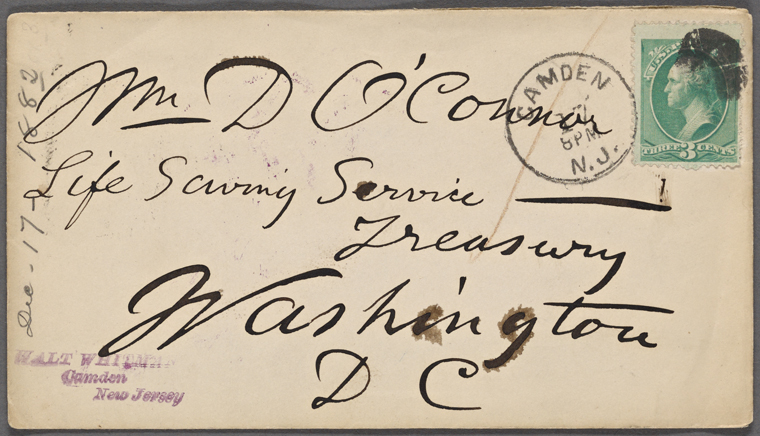 Wm D O'Connor
Life Saving Service
Treasury
Washington
D C
CAMDEN
8 PM
N.J.
THREE 3 CENTS
WALT WHITMAN
Camden
New Jersey
Dec - 17 - 1882